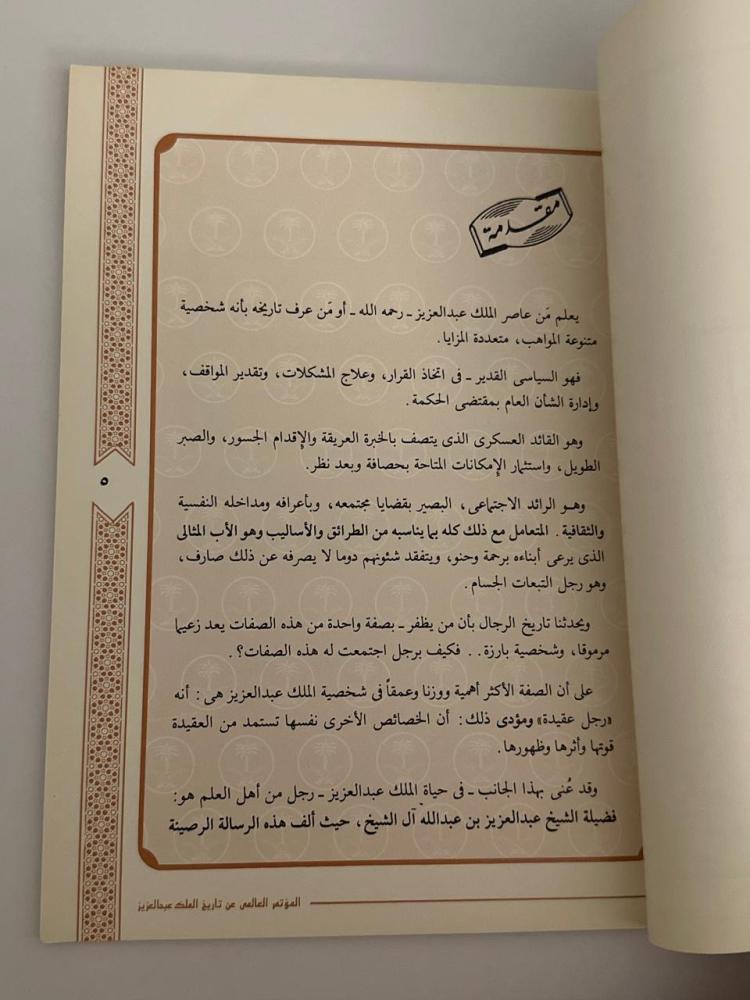 مقدمة
يعلم مَن عاصر الملك عبدالعزيز ـ رحمه الله ـ أو مَن عرف تاريخه بأنه شخصية
متنوعة المواهب، متعددة المزايا.
فهو السياسى القدير ـ فى اتخاذ القرار، وعلاج المشكلات، وتقدير المواقف،
وإدارة الشأن العام بمقتضى الحكمة.
وهو القائد العسكرى الذى يتصف بالخبرة العريقة والإقدام الجسور، والصبر
الطويل، واستثمار الإمكانات المتاحة بحصافة وبعد نظر.
وهو الرائد الاجتماعى، البصير بقضايا مجتمعه، وبأعرافه ومداخله النفسية
والثقافية. المتعامل مع ذلك كله بما يناسبه من الطرائق والأساليب وهو الأب المثالى
الذى يرعى أبناءه برحمة وحنو، ويتفقد شئونهم دوما لا يصرفه عن ذلك صارف،
وهو رجل التبعات الجسام.
ويحدثنا تاريخ الرجال بأن من يظفر ـ بصفة واحدة من هذه الصفات يعد زعيما
مرموقا، وشخصية بارزة.. فكيف برجل اجتمعت له هذه الصفات؟.
على أن الصفة الأكثر أهمية ووزنا وعمقاً فى شخصية الملك عبدالعزيز هى: أنه
«رجل عقيدة» ومؤدى ذلك: أن الخصائص الأخرى نفسها تستمد من العقيدة
قوتها وأثرها وظهورها.
وقد عُنى بهذا الجانب ـ فى حياة الملك عبدالعزيز ـ رجل من أهل العلم هو:
فضيلة الشيخ عبدالعزيز بن عبدالله آل الشيخ، حيث ألف هذه الرسالة الرصينة
٥
المؤتمر العالمى عن تاريخ الملك عبدالعزيز